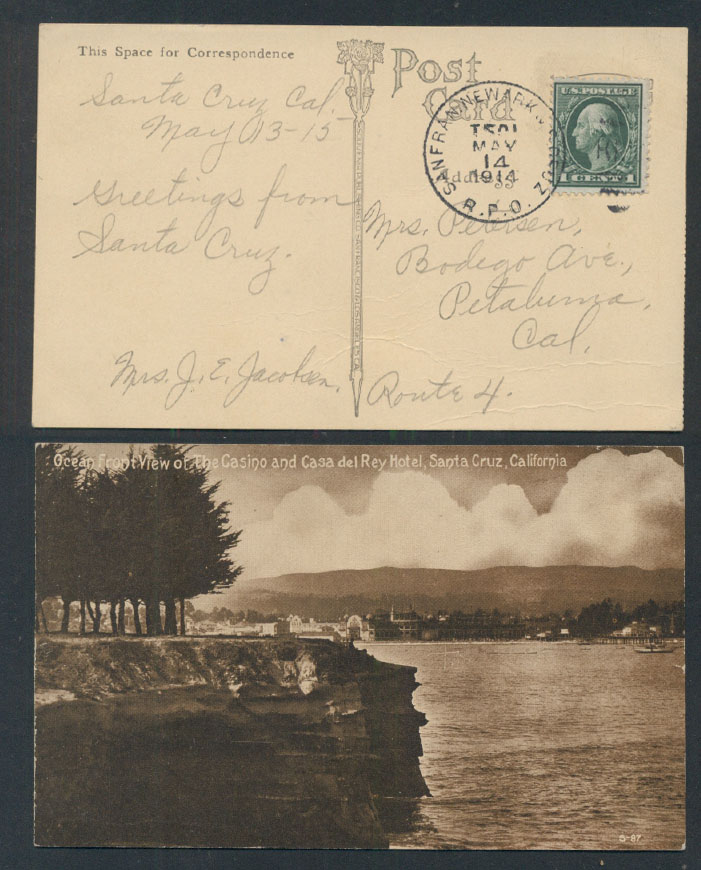 This Space for Correspondence
Post
Card
Address
SAN FRAN NEWARK &
MAY
14
1914
R.P.O.
U.S. POSTAGE
1 CENT 1
Santa Cruz Cal.
May 13-15
Greetings from
Santa Cruz.
Mrs. J. E. Jacobsen.
Mrs. Petersen,
Bodego Ave.,
Petaluma,
Cal.
Route 4.
Ocean Front View of The Casino and Casa del Rey Hotel, Santa Cruz, California
S-87